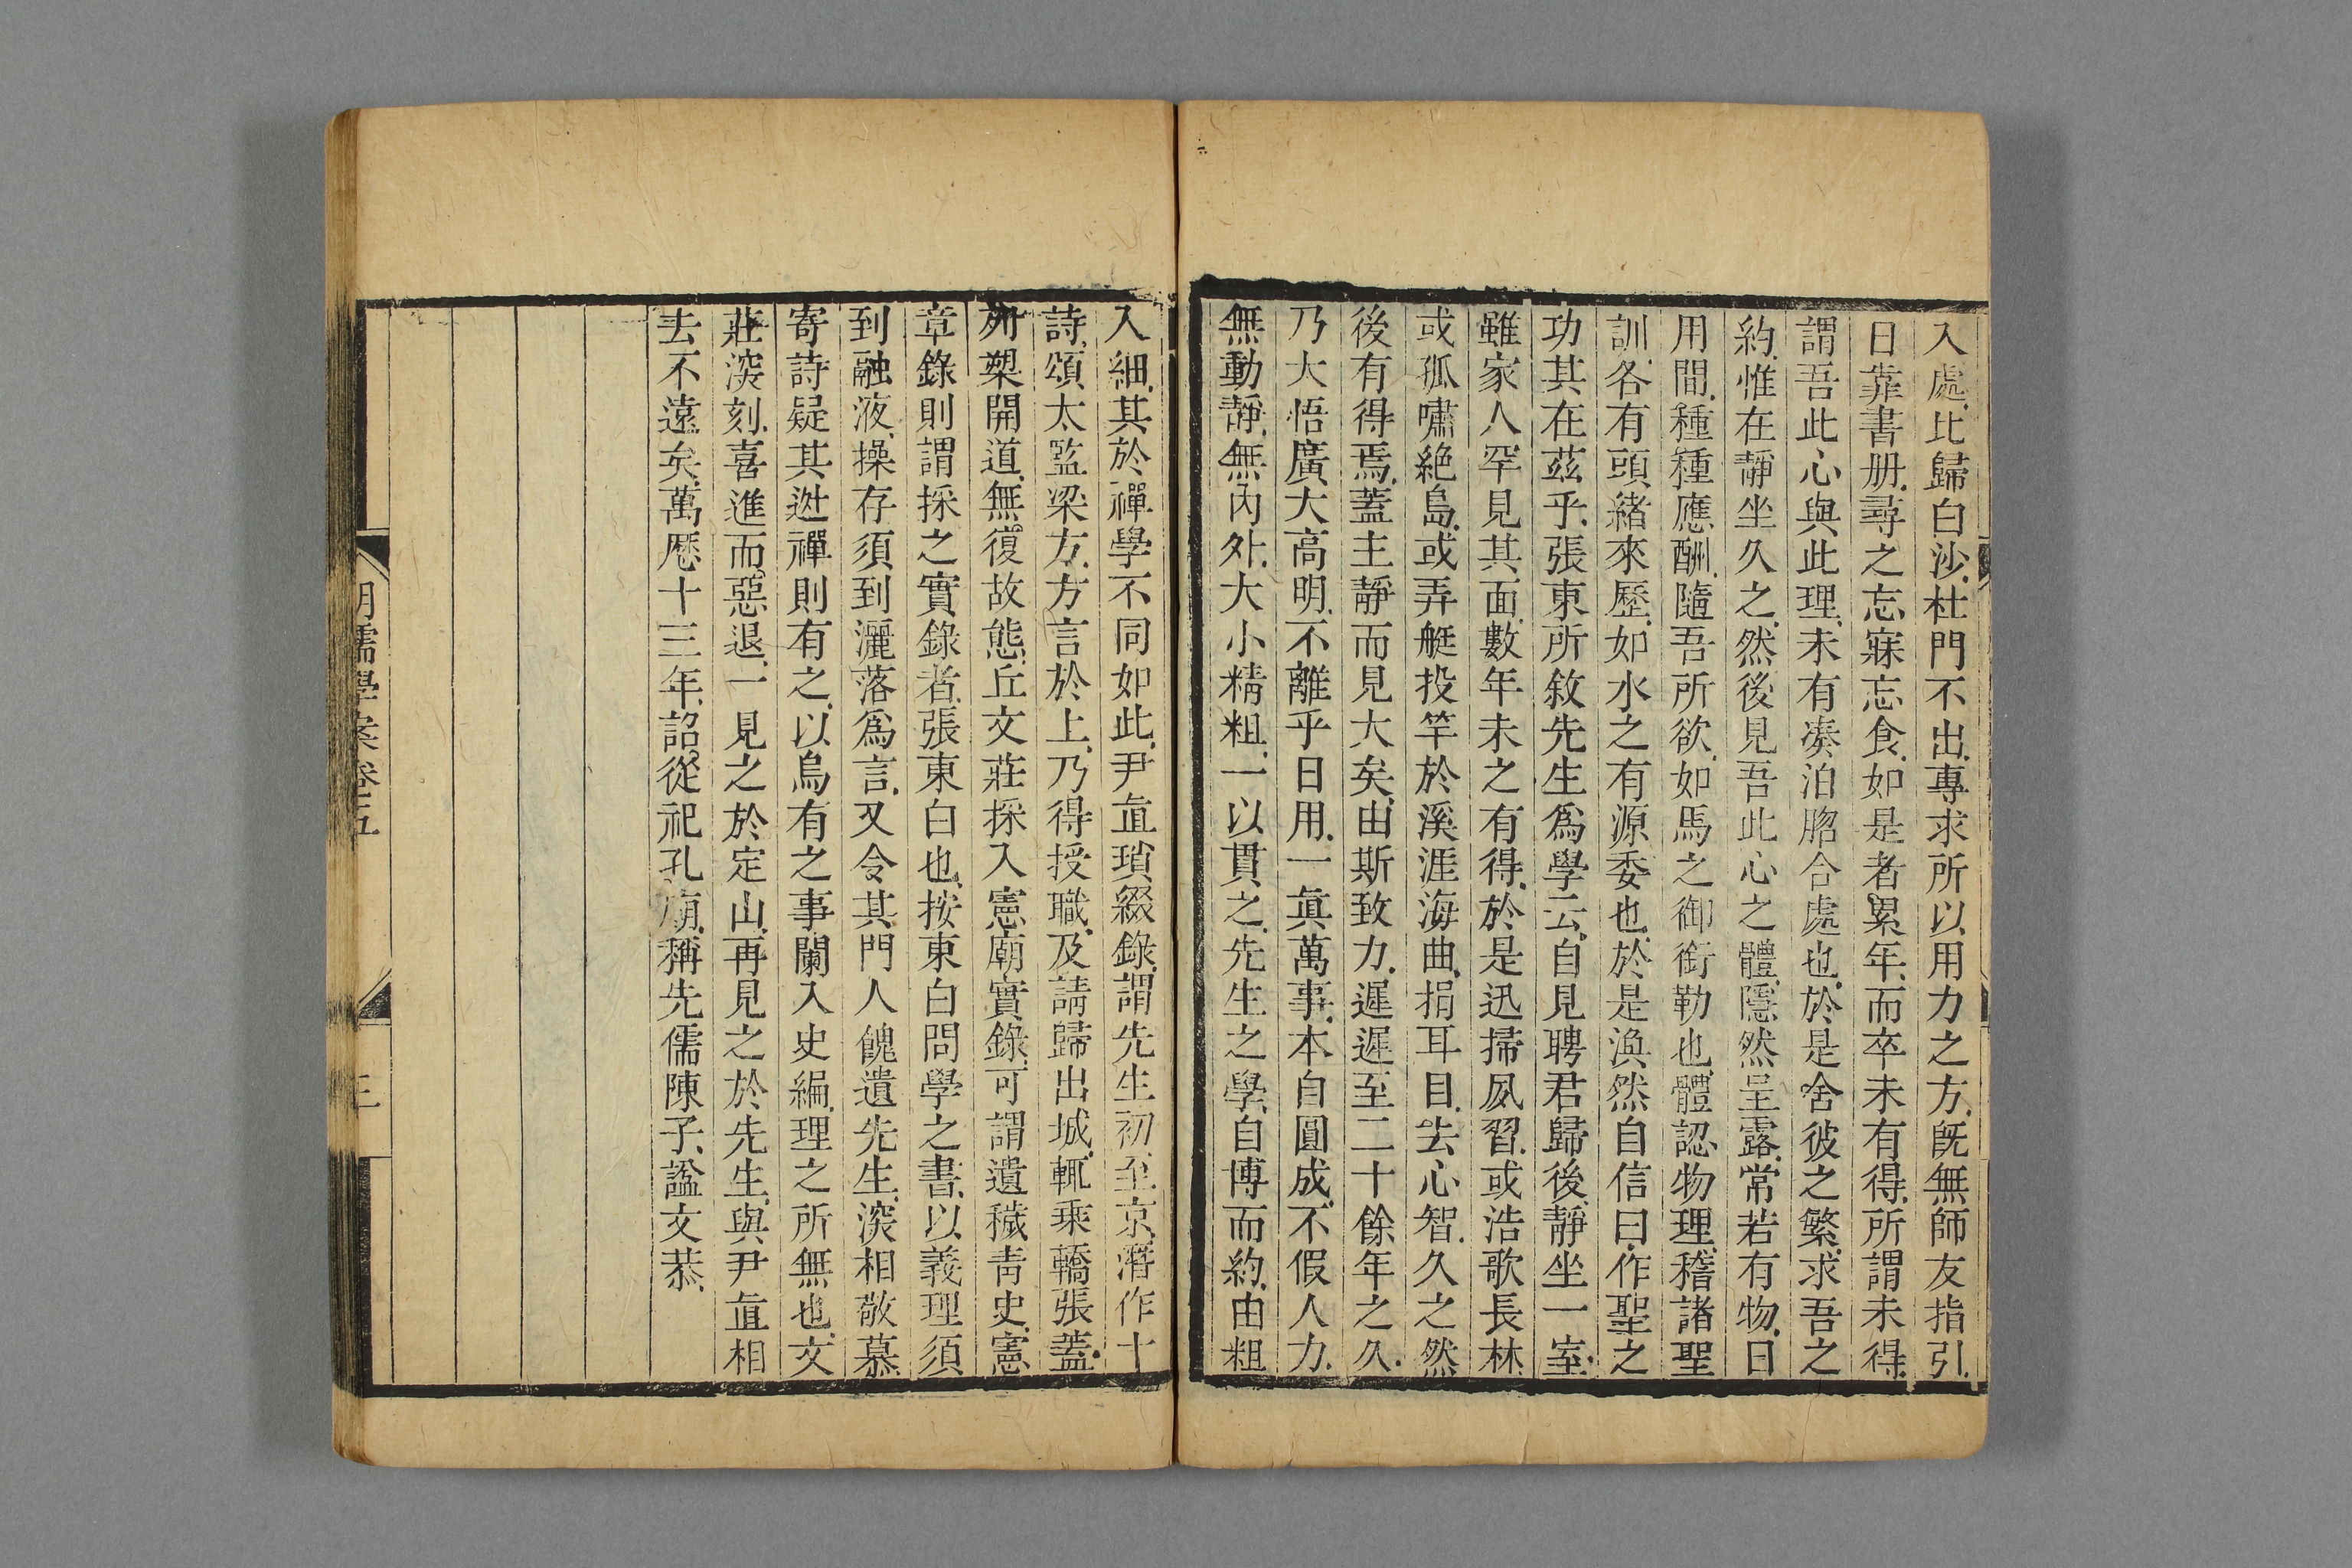 入處、比歸白沙、杜門不出、專求所以用力之方、旣無師友指引、
日靠書册、尋之忘寐忘食、如是者累年、而卒未有得、所謂未得、
謂吾此心與此理、未有湊泊脗合處也、於是舍彼之繁、求吾之
約、惟在靜坐久之、然後見吾此心之體、隱然呈露、常若有物、日
用間、種種應酬、隨吾所欲、如馬之御銜勒也、體認物理、稽諸聖
訓、各有頭緒來歷、如水之有源委也、於是渙然自信曰、作聖之
功其在茲乎、張東所敘先生爲學云、自見聘君歸後、靜坐一室、
雖家人罕見其面、數年未之有得、於是迅掃夙習、或浩歌長林、
或孤嘯絶島、或弄艇投竿於溪涯海曲、捐耳目、去心智、久之然
後有得焉、蓋主靜而見大矣、由斯致力、遲遲至二十餘年之久、
乃大悟廣大高明、不離乎日用、一眞萬事、本自圓成、不假人力、
無動靜、無內外、大小精粗、一以貫之、先生之學、自博而約、由粗
入細、其於禪學不同如此、尹直瑣綴錄、謂先生初至京、潛作十
詩、頌太監梁方、方言於上、乃得授職、及請歸出城、輒乘轎張蓋、
列槊開道、無復故態、丘文莊採入憲廟實錄、可謂遺穢靑史、憲
章錄則謂採之實錄者、張東白也、按東白問學之書、以義理須
到融液、操存須到灑落爲言、又令其門人餽遺先生、深相敬慕
寄詩疑其逃禪則有之、以烏有之事闌入史編、理之所無也、文
莊深刻、喜進而惡退、一見之於定山、再見之於先生、與尹直相
去不遠矣、萬厯十三年、詔從祀孔廟、稱先儒陳子、謚文恭、
明儒學案卷五
三